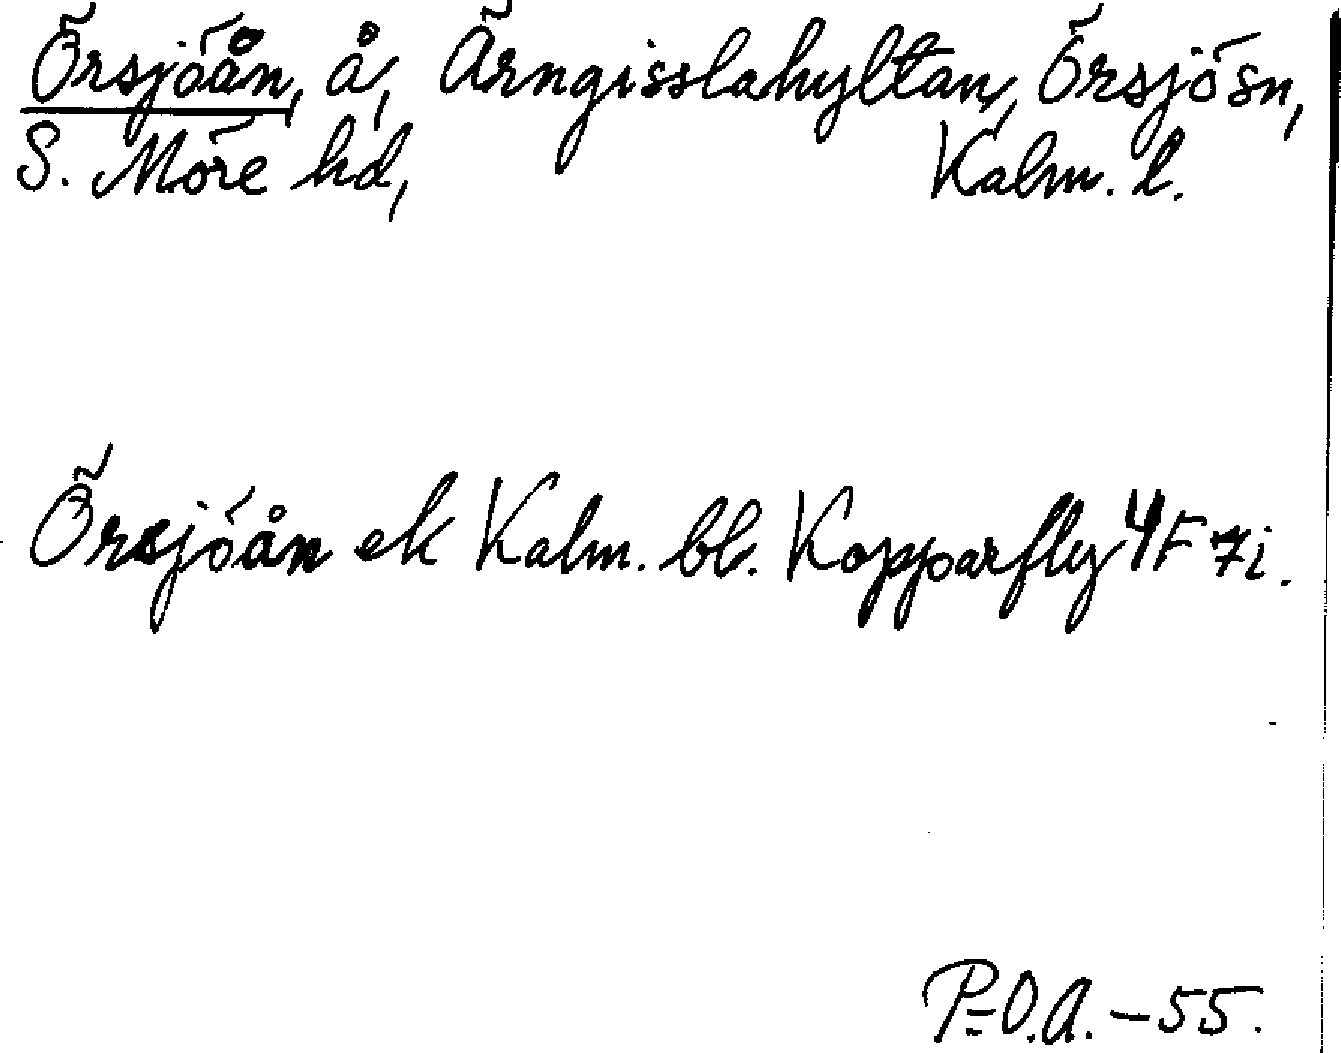 Örsjöån, å, Ärngisslahyltan, Örsjö sn,
S. Möre hd, Kalm. l.
Örsjöån ek Kalm. bl. Kopparfly 4F 7i.
P-O.A. - 55.